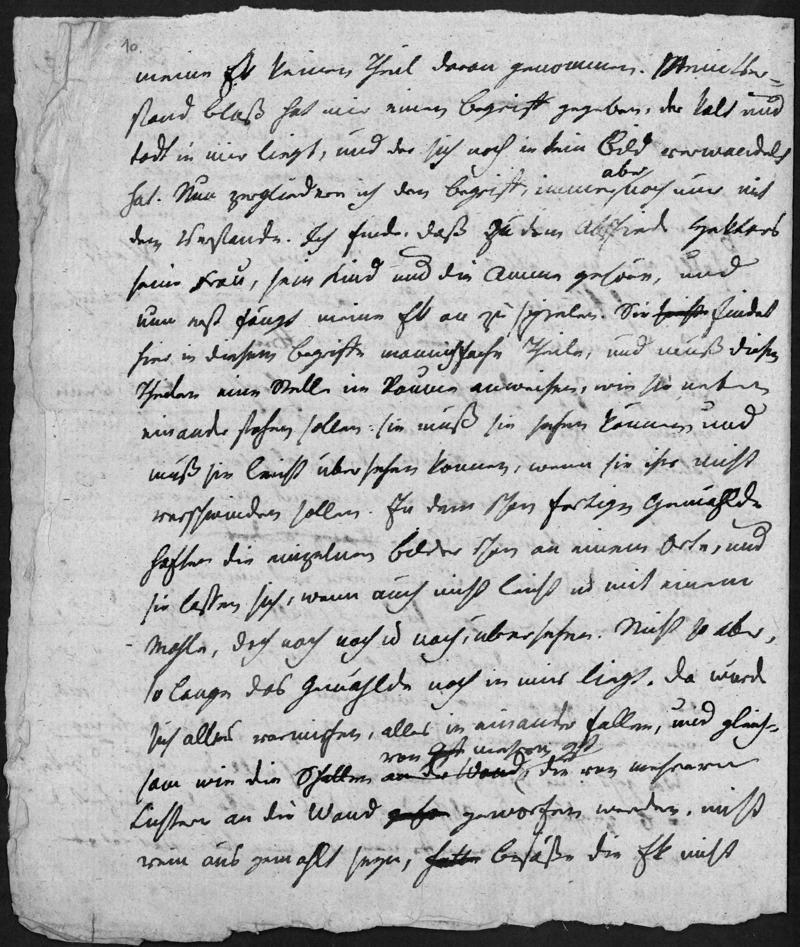 10.
meine Ek keinen Theil daran genommen. Mein Ver-
stand bloß hat mir einen Begriff gegeben, der kalt und
todt in mir liegt, und der sich noch in kein Bild verwandelt
aber
hat. Nun zergliedere ich den Begriff, immer noch nur mit
dem Verstande. Ich finde, daß zu dem Abschied Hektors
seine Frau, sein Kind und die Amme gehören, und
nun erst fängt meine Ek an zu spielen. Sie findet
hier in diesem Begriffe mannichfache Theile, und muß diesen
Theilen eine Stelle im Raume anweisen, wie sie neben
einander stehen sollen: sie muß sie sehen können, und
muß sie leicht übersehen können, wenn sie ihr nicht
verschwinden sollen. In dem schon fertigen Gemählde
haften die einzelnen Bilder schon an einem Orte, und
sie lassen sich, wenn auch nicht leicht u mit einem
Mahle, doch nach und nach, übersehen. Nicht so aber,
so lange das Gemählde noch in mir liegt. Da würde
sich alles verwirren, alles in einander fallen, und gleich-
von mehrern
sam wie die Schatten an der Wand, die von mehreren
Lichtern an die Wand geworfen werden, nicht
rein aus gemahlt seyn, hätte besäße die Ek nicht